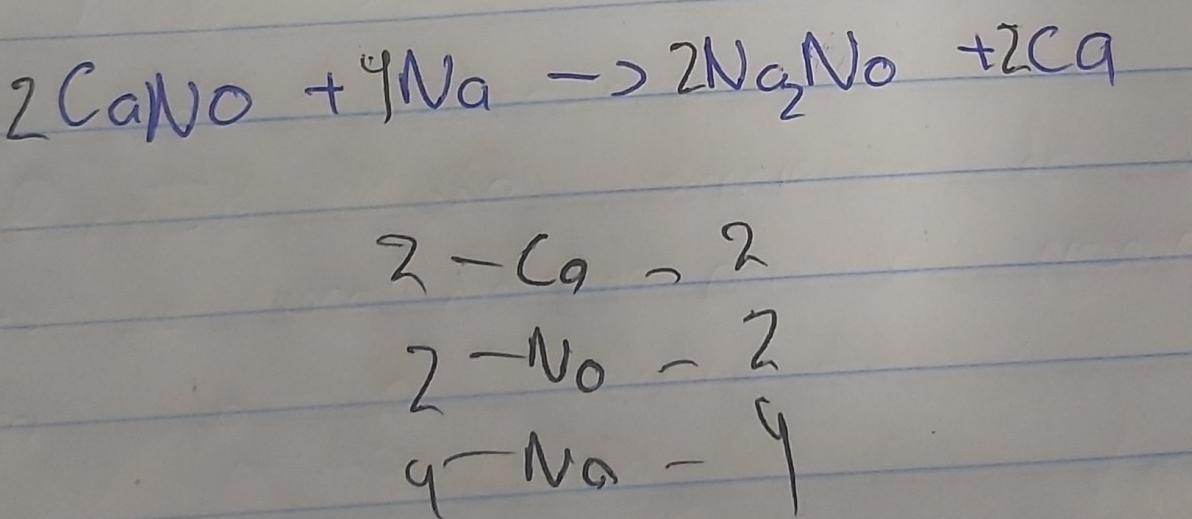 2CaNO + 4Na -> 2Na₂No + 2Ca
2 - Ca - 2
2 - No - 2
4 - Na - 4